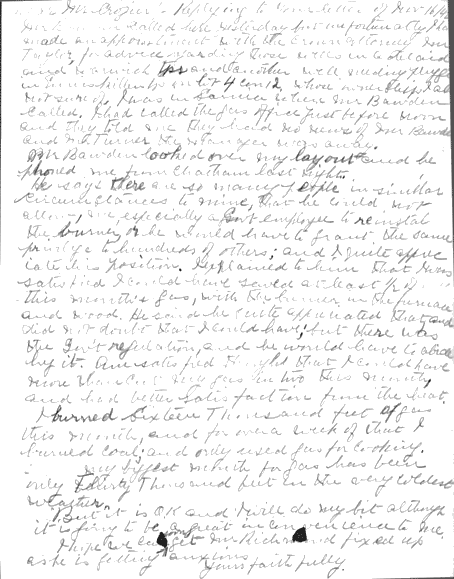 Mr Crozier:- Replying to your letter of Nov 16/42
called here yesterday but unfortunately I had
made an appointment with the Crown Attorney Mr
for advice regarding those wells in
and and another well needing plugged
in lot 4 con 12, whose ownership I am
not sure of. I was in Sarnia when Mr Bawden
called. I had called the Gas Office just before noon
and they told me they had no news of Mr Bawden
and Mr Turner the Manager was away.
Mr Bawden looked over my layout and he
phoned me from Chatham last night.
He says there are so many people in similar
circumstances to mine, that he could not
allow, me especially a Govt employee to reinstal
the burner, or he would have to grant the same
privilege to hundreds of others; and I quite
his position. I explained to him that I was
satisfied I could have saved at least 1/2 of
this month's gas, with the burner in the furnace
and wood. He said he quite appreciated that and
did not doubt that I could have; but there was
the Gov't regulation, and he would have to abide
by it. Am satisfied that I could have
more than cut my gas in two this month,
and had better satisfaction from the heat.
I burned Sixteen Thousand feet of gas
this month, and for over a week of that I
burned coal; and only used gas for cooking.
My biggest month for gas has been
only Thirty Thousand feet in the very coldest
weather.
But it is OK and I will do my bit although
it is going to be a great inconvenience to me.
I hope we can soon get Mr Richmond fixed up
as he is getting anxious
Yours faithfully.